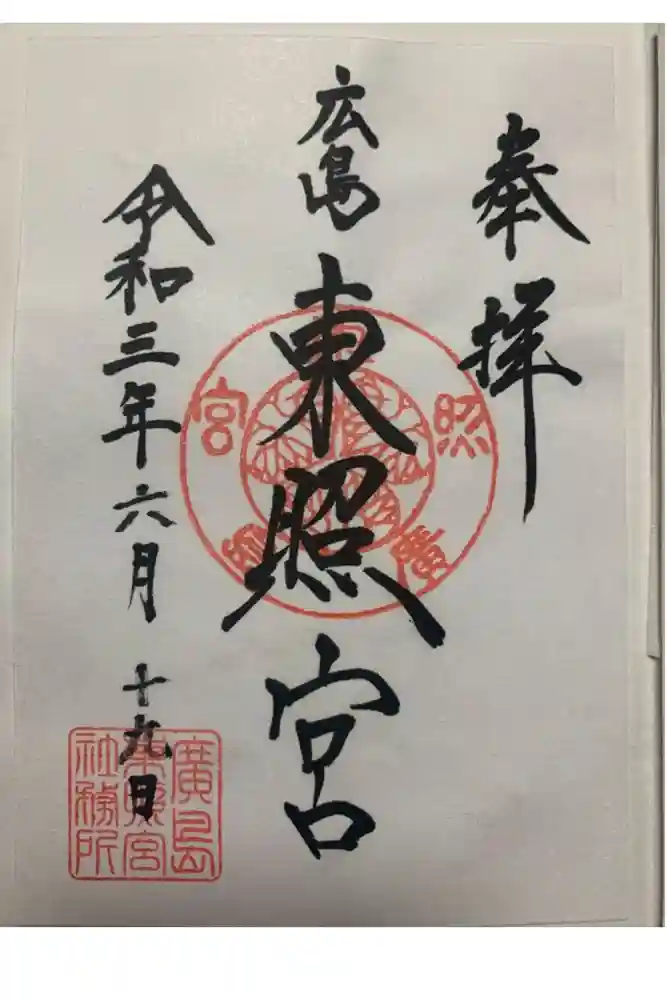 奉拝
広島
東照宮
令和三年六月十九日
東照宮廣島
廣島
東照宮
社務所